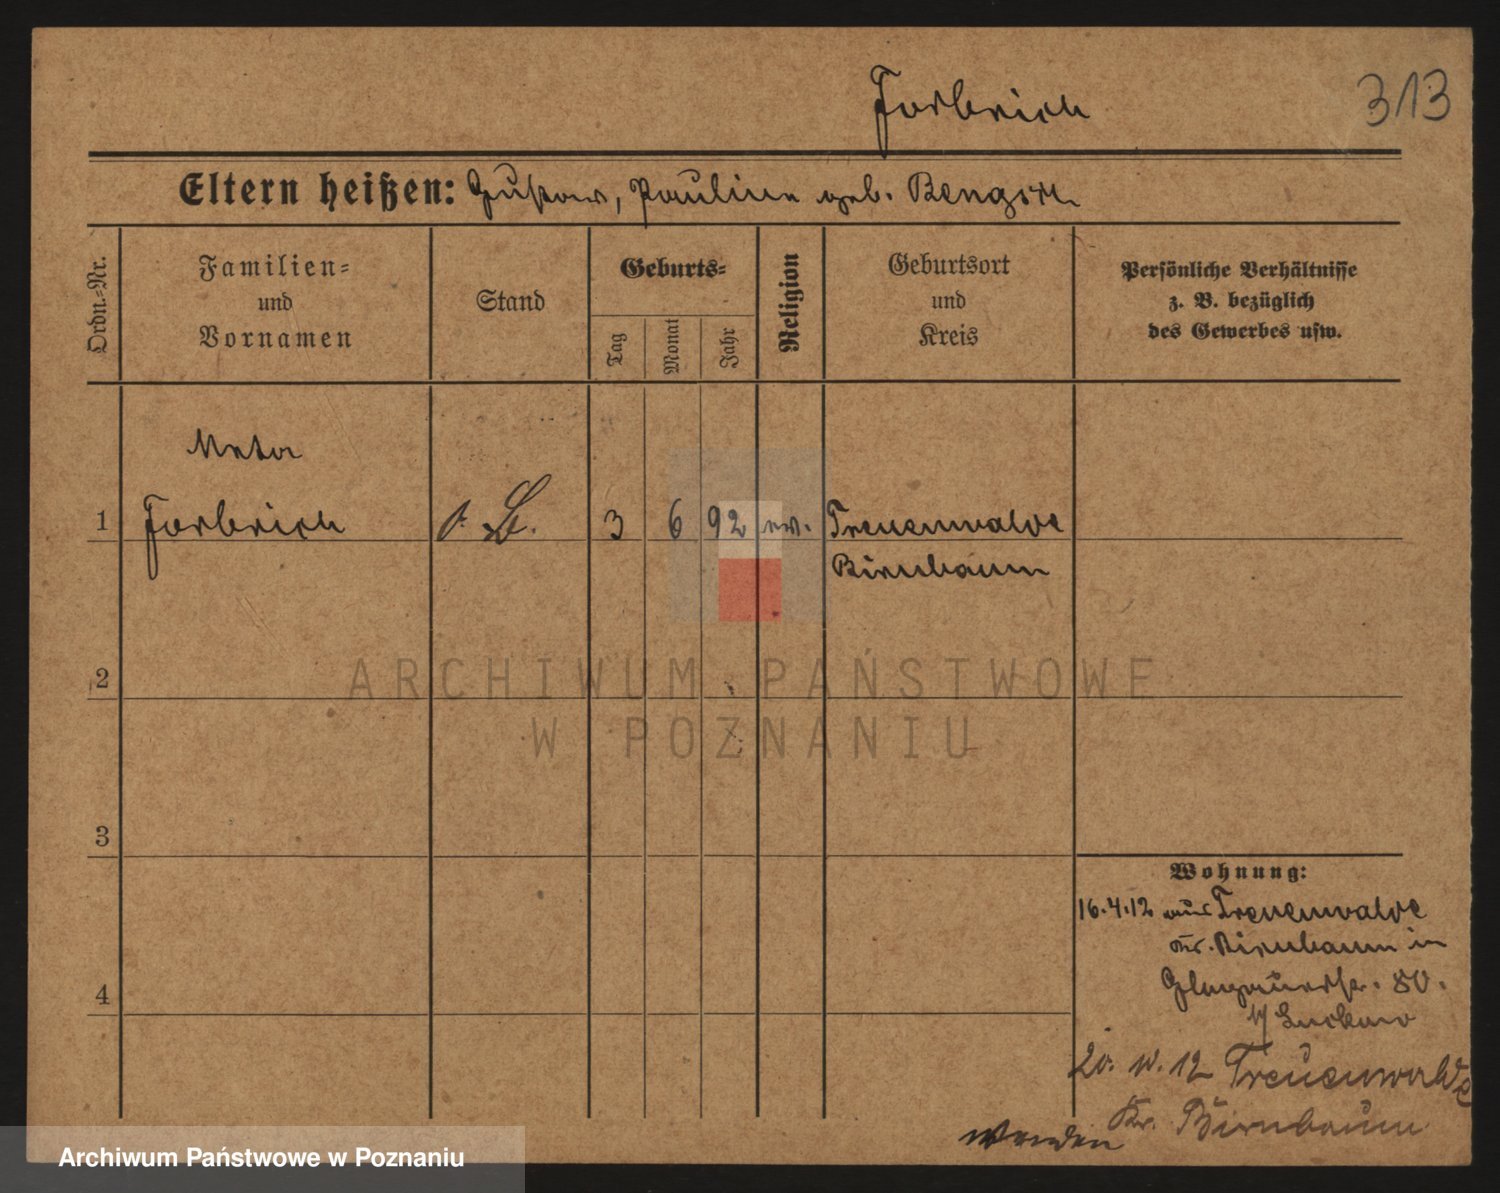 Forbrich
313
Eltern heißen: Gustav, Pauline geb.
Ordn.-Nr.
Familien-
und
Vornamen
Stand
Geburts-
Tag
Monat
Jahr
Religion
Geburtsort
und
Kreis
Persönliche Verhältnisse
z. B. bezüglich
des Gewerbes usw.
Meta
1 Forbrich o. B. 3 6 92 ev. Treuenwalde
Birnbaum
2
3
4
Wohnung:
16.4.12 aus Treuenwalde
Kr. Birnbaum in
Glogauerstr. 80.
b/ Luckow
20. 10. 12 Treuenwalde
Kr. Birnbaum
wenden
ARCHIWUM PAŃSTWOWE
W POZNANIU
Archiwum Państwowe w Poznaniu